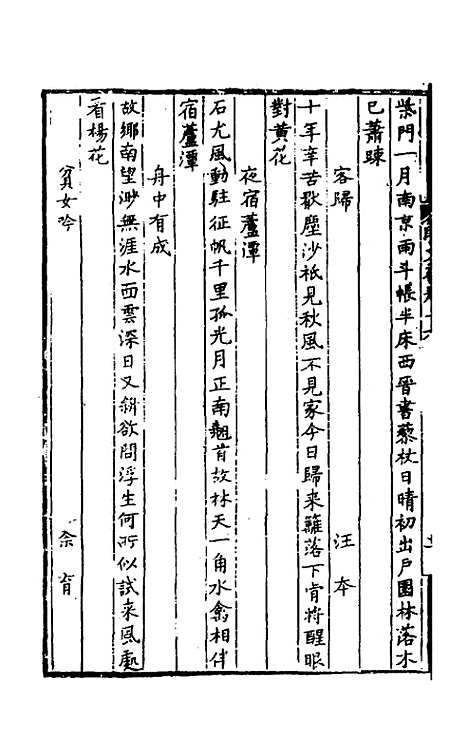 柴門一月南京雨斗帳半床西晉書藜杖日晴初出戶園林落木
已蕭踈
客歸 汪本
十年辛苦歎塵沙祇見秋風不見家今日歸来籬落下肯将醒眼
對黃花
夜宿蘆潭
石尤風動駐征帆千里孤光月正南翹首故林天一角水禽相伴
宿蘆潭
舟中有成
故鄉南望渺無涯水面雲深日又斜欲問浮生何所似試来風處
看楊花
貧女吟 余育